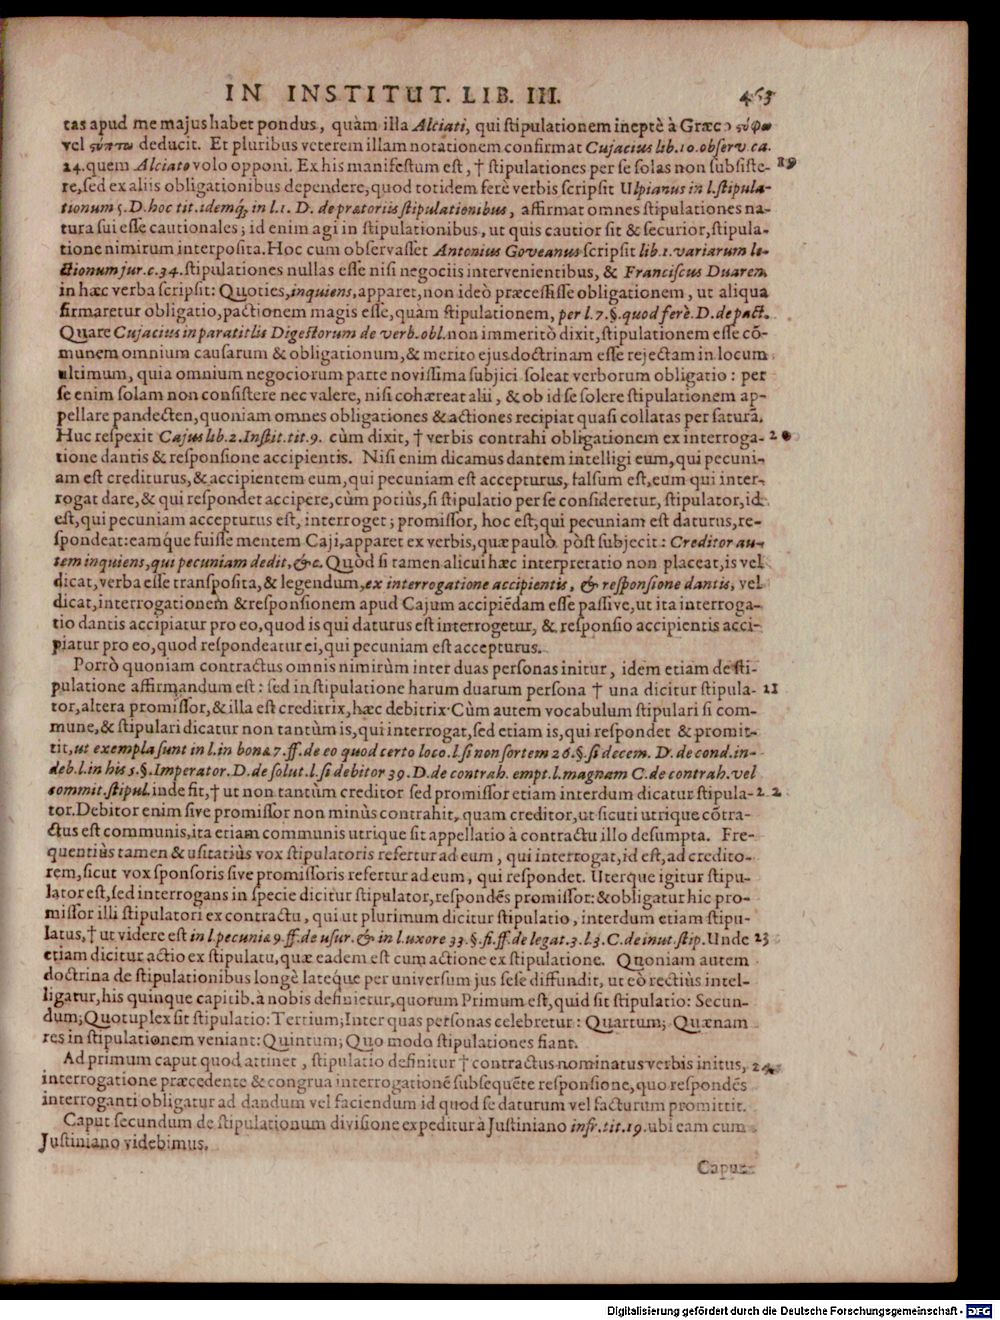 IN INSTITUT. LIB. III. 463
tas apud me majus habet pondus, quàm illa Alciati, qui stipulationem ineptè à Græco
vel deducit. Et pluribus veterem illam notationem confirmat Cujacius lib. 10. observ. ca.
24. quem Alciato volo opponi. Ex his manifestum est, † stipulationes per se solas non subsiste- 19
re, sed ex aliis obligationibus dependere, quod totidem ferè verbis scripsit Ulpianus in l. stipula-
tionum 5. D. hoc tit. idemq́; in l. 1. D. de prætoriis stipulationibus, affirmat omnes stipulationes na-
tura sui esse cautionales; id enim agi in stipulationibus, ut quis cautior sit & securior, stipula-
tione nimirum interposita. Hoc cum observasset Antonius Goveanus scripsit lib. 1. variarum le-
ctionum jur. c. 34. stipulationes nullas esse nisi negociis intervenientibus, & Franciscus Duaren
in hæc verba scripsit: Quoties, inquiens, apparet, non ideò præcessisse obligationem, ut aliqua
firmaretur obligatio, pactionem magis esse, quàm stipulationem, per l. 7. §. quod ferè. D. de pact.
Quare Cujacius in paratitlis Digestorum de verb. obl. non immeritò dixit, stipulationem esse cõ-
munem omnium causarum & obligationum, & merito ejus doctrinam esse rejectam in locum
ultimum, quia omnium negociorum parte novissima subjici soleat verborum obligatio: per
se enim solam non consistere nec valere, nisi cohæreat alii, & ob id se solere stipulationem ap-
pellare pandecten, quoniam omnes obligationes & actiones recipiat quasi collatas per saturã.
Huc respexit Cajus lib. 2. Instit. tit. 9. cùm dixit, † verbis contrahi obligationem ex interroga- 20
tione dantis & responsione accipientis. Nisi enim dicamus dantem intelligi eum, qui pecuni-
am est crediturus, & accipientem eum, qui pecuniam est accepturus, falsum est, eum qui inter-
rogat dare, & qui respondet accipere, cùm potiùs, si stipulatio per se consideretur, stipulator, id
est, qui pecuniam accepturus est, interroget; promissor, hoc est, qui pecuniam est daturus, re-
spondeat: eamque fuisse mentem Caji, apparet ex verbis, quæ paulò pòst subjecit: Creditor au-
tem inquiens, qui pecuniam dedit, &c. Quòd si tamen alicui hæc interpretatio non placeat, is vel
dicat, verba esse transposita, & legendum, ex interrogatione accipientis, & responsione dantis, vel
dicat, interrogationem & responsionem apud Cajum accipiẽdam esse passive, ut ita interroga-
tio dantis accipiatur pro eo, quod is qui daturus est interrogetur, & responsio accipientis acci-
piatur pro eo, quod respondeatur ei, qui pecuniam est accepturus.
Porrò quoniam contractus omnis nimirùm inter duas personas initur, idem etiam de sti-
pulatione affirmandum est: sed in stipulatione harum duarum persona † una dicitur stipula- 21
tor, altera promissor, & illa est creditrix, hæc debitrix. Cùm autem vocabulum stipulari si com-
mune, & stipulari dicatur non tantùm is, qui interrogat, sed etiam is, qui respondet & promit-
tit, ut exempla sunt in l. in bona 7. ff. de eo quod certo loco. l. si non sortem 26. §. si decem. D. de cond. in-
deb. l. in his 5. §. Imperator. D. de solut. l. si debitor 39. D. de contrah. empt. l. magnam C. de contrah. vel
commit. stipul. inde fit, † ut non tantùm creditor sed promissor etiam interdum dicatur stipula- 22
tor. Debitor enim sive promissor non minùs contrahit, quam creditor, ut sicuti utrique cõtra-
ctus est communis, ita etiam communis utrique sit appellatio à contractu illo desumpta. Fre-
quentiùs tamen & usitatiùs vox stipulatoris refertur ad eum, qui interrogat, id est, ad credito-
rem, sicut vox sponsoris sive promissoris refertur ad eum, qui respondet. Uterque igitur stipu-
lator est, sed interrogans in specie dicitur stipulator, respondẽs promissor: & obligatur hic pro-
missor illi stipulatori ex contractu, qui ut plurimum dicitur stipulatio, interdum etiam stipu-
latus, † ut videre est in l. pecuniæ 9. ff. de usur. & in l. uxore 33. §. fi. ff. de legat. 3. l. 3. C. de inut. stip. Unde 23
etiam dicitur actio ex stipulatu, quæ eadem est cum actione ex stipulatione. Quoniam autem
doctrina de stipulationibus longè latéque per universum jus sese diffundit, ut eò rectiùs intel-
ligatur, his quinque capitib. à nobis definietur, quorum Primum est, quid sit stipulatio: Secun-
dum; Quotuplex sit stipulatio: Tertium; Inter quas personas celebretur: Quartum; Quænam
res in stipulationem veniant: Quintum; Quo modo stipulationes fiant.
Ad primum caput quod attinet, stipulatio definitur † contractus nominatus verbis initus, 24
interrogatione præcedente & congrua interrogationẽ subsequẽte responsione, quo respondẽs
interroganti obligatur ad dandum vel faciendum id quod se daturum vel facturum promittit.
Caput secundum de stipulationum divisione expeditur à Justiniano infr. tit. 19. ubi eam cum
Justiniano videbimus.
Caput
Digitalisierung gefördert durch die Deutsche Forschungsgemeinschaft - DFG